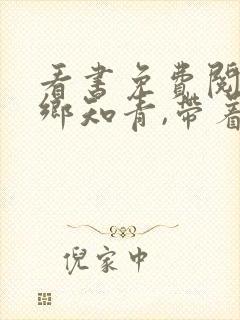 看书免费阅
乡知青,带着
倪家中